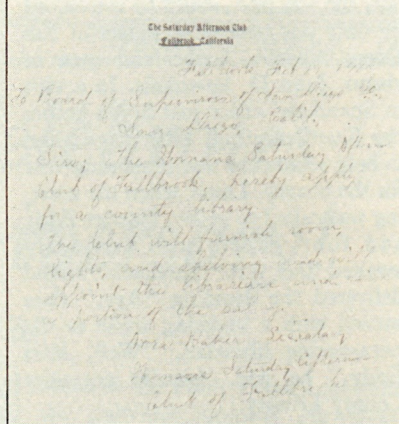 The Saturday Afternoon Club
Fallbrook, California
Fallbrook Feb
To Board of Supervisors of San Diego Co.
San Diego, Calif.
Sirs; The Womans Saturday Aftern
Club of Fallbrook, hereby apply
for a county library
The Club will furnish room,
lights, and shelving and will
appoint the librarian and
a portion of the
Baker Secretary
Womans Saturday Afternoon
Club of Fallbrook